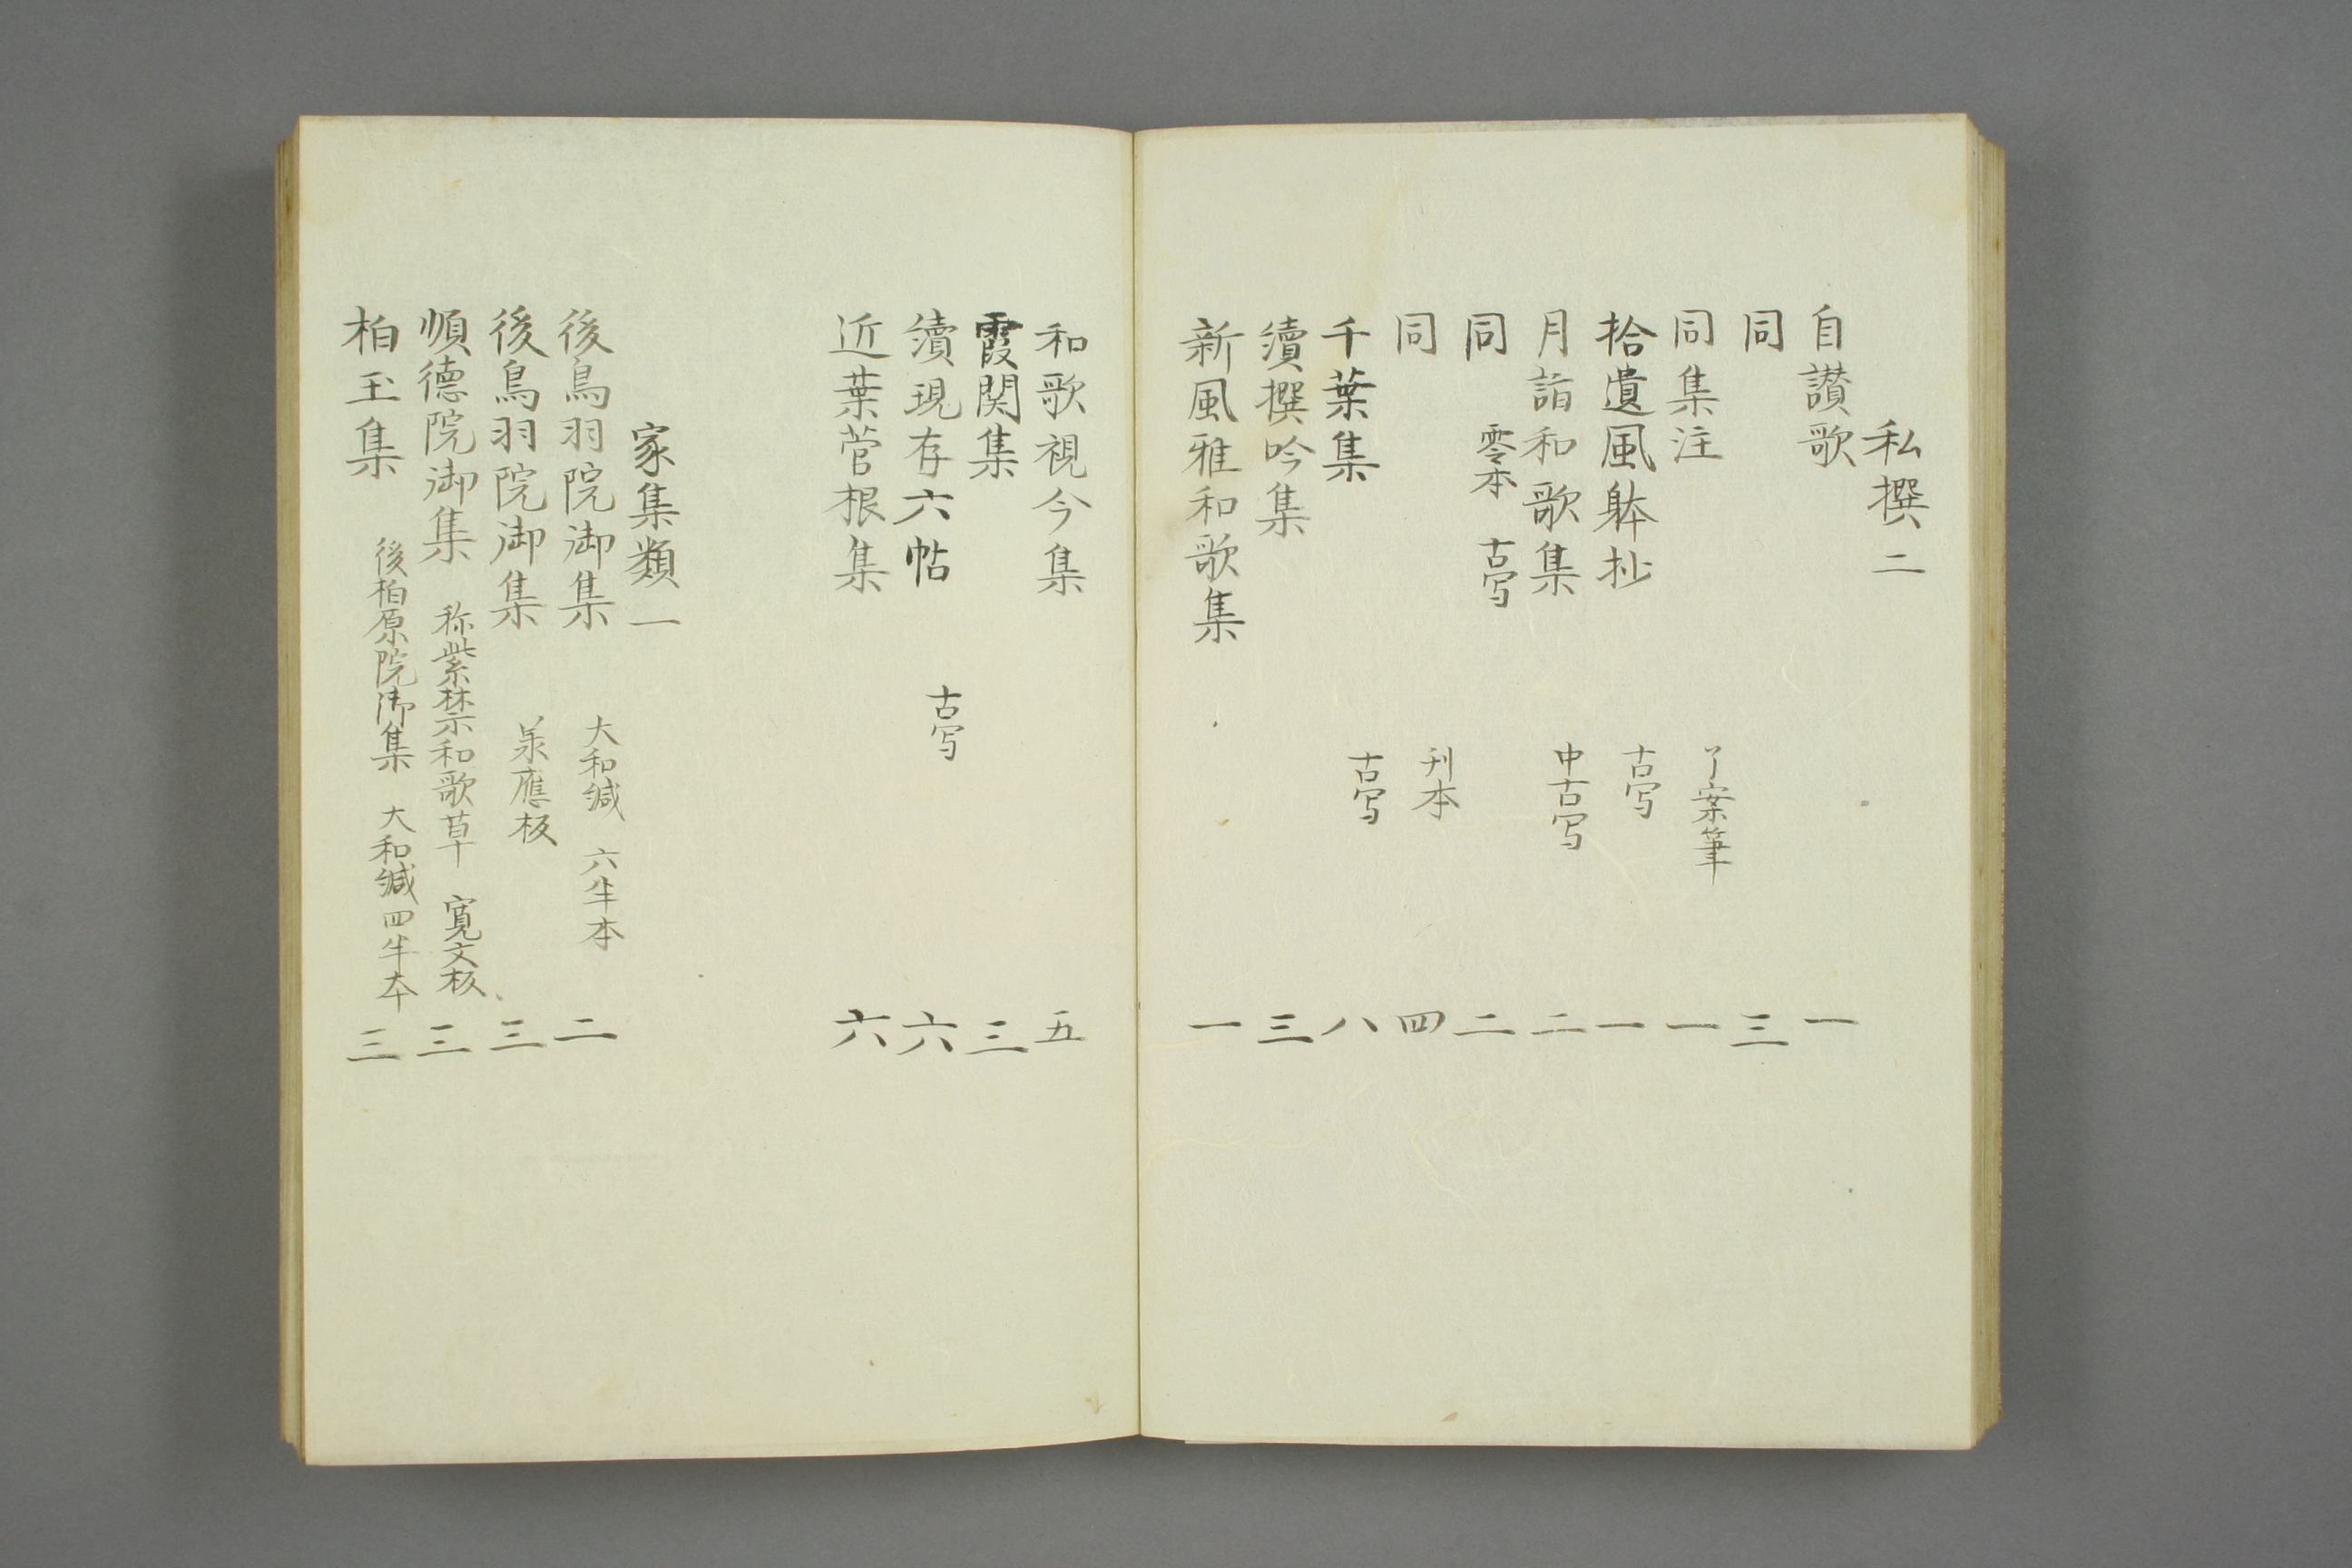 私撰二
自讃歌 一
同 三
同集注 了案筆 一
拾遺風躰抄 古写 一
月詣和歌集 中古写 二
同 零本 古写 二
同 刊本 四
千葉集 古写 八
續撰吟集 三
新風雅和歌集 一
和歌視今集 五
霞関集 三
續現存六帖 古写 六
近葉菅根集 六
家集類一
後鳥羽院御集 大和緘 六半本 二
後鳥羽院御集 承應板 三
順德院御集 称紫禁和歌草 寛文板 三
柏玉集 後柏原院御集 大和緘四半本 三